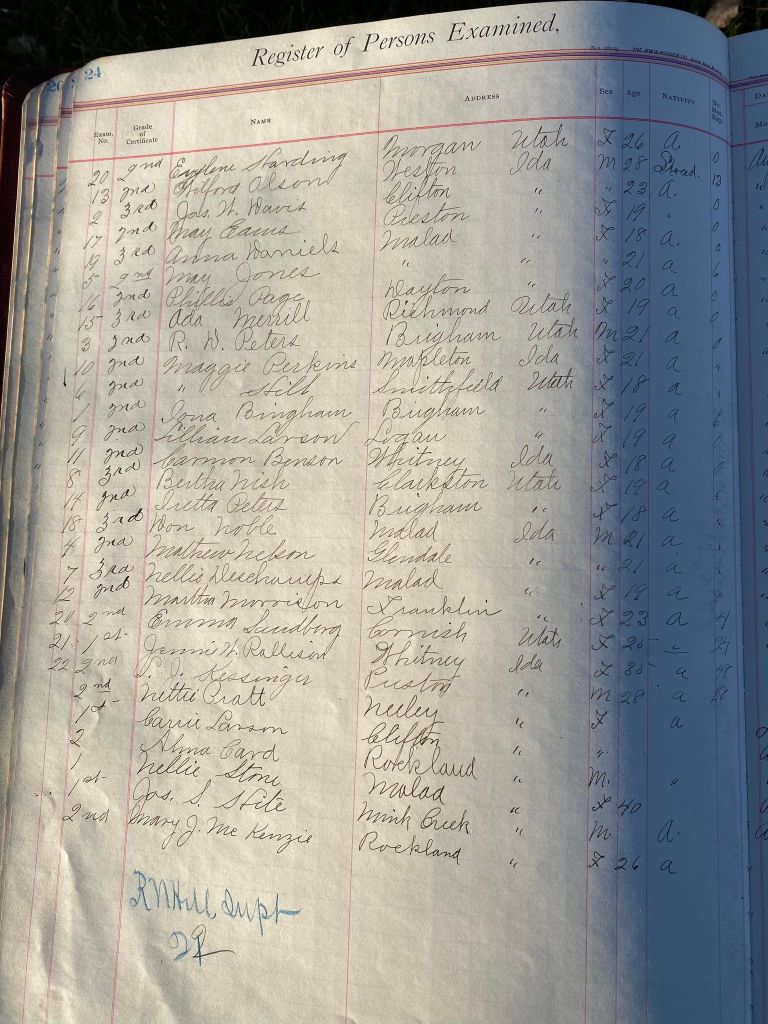 Register of Persons Examined,
24
Exam. No. Grade of Certificate NAME ADDRESS Sex Age NATIVITY
20 2nd Evylene Harding Morgan Utah F 26 a 0
13 2nd Wilford Olson Weston Ida M 28 13
2 3rd Jas. W. Davis Clifton " " 23 a. 0
17 2nd May Eams Preston " F 19 " 0
19 3rd Anna Daniels Malad " F 18 a. 0
5 2nd May Jones " " " 21 a 6
16 2nd Phillis Page Dayton " F 20 a 0
15 3rd Ada Merrill Richmond Utah F 19 a 0
3 2nd R. D. Peters Brigham Utah M 21 a 0
10 2nd Maggie Perkins Mapleton Ida F 21 a
6 2nd " Hill Smithfield Utah F 18 a
1 2nd Iona Bingham Brigham " F 19 a 6
9 2nd Lillian Larson Logan " F 19 a 0
11 2nd Carmon Benson Whitney Ida F 18 a 0
8 3rd Bertha Nish Clarkston Utah F 19 a
14 2nd Iretta Peters Brigham " F 18 a
18 3rd Don Noble Malad Ida M 21 a
4 2nd Mathew Nelson Glendale " " 21 a
7 3rd Nellie Deschamps Malad " F 19 a
12 2nd Martha Morrison Franklin " F 23 a 4
20 2nd Emma Lundborg Cornish Utah F 24
21 1st Jenni W. Rallison Whitney Ida F 35 a 48
22 2nd Kessinger Preston M 28 a
2nd Nettie Pratt Neeley " F a
1st Carrie Larson Clifton " "
2 Alma Card Rockland " M. "
1 Nellie Stone Malad " F 40
1st Jas. S. Hite Mink Creek " M. a.
2nd Mary J. McKenzie Rockland " F 26 a
R N Hill, Supt